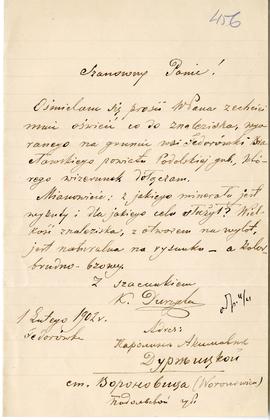 456
Szanowny Panie!
Ośmielam się prosić WPana zechcieć
mnie oświecić co do znaleziska, wyo-
ranego na gruncie wsi Fedorówki Bra-
cławskiego powiatu Podolskiej gub., któ-
rego wizerunek dołączam.
Mianowicie: z jakiego minerału jest
wyżuty i dla jakiego celu służył? Wiel-
kość znaleziska, z otworem na wylot,
jest naturalna na rysunku – a kolor
brudno-bronzowy.
Z szacunkiem
K.
1 Lutego 1902 r.
Fedorówka
Adres:
Каролина Акимовна
ст. Вороновица (Woronowica)
Подольской губ.